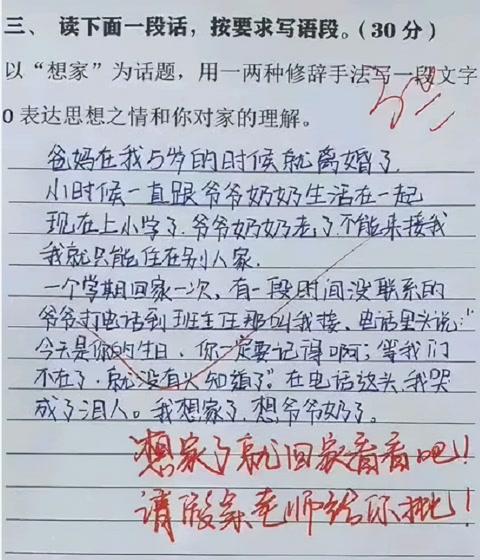 三、 读下面一段话，按要求写语段。(30分)
以“想家”为话题，用一两种修辞手法写一段文字
0 表达思想之情和你对家的理解。
爸妈在我5岁的时候就离婚了
小时候一直跟爷爷奶奶生活在一起
现在上小学了.爷爷奶奶老了.不能来接我
我就只能住在别人家.
一个学期回家一次，有一段时间没联系的
爷爷打电话到班主任那叫我接、电话里头说：“
今天是你的生日、你一定要记得啊；等我们
不在了.就没有人知道了”。在电话这头、我哭
成了泪人。我想家了.想爷爷奶了。
想家了就回家看看吧！
请假条老师给你批！